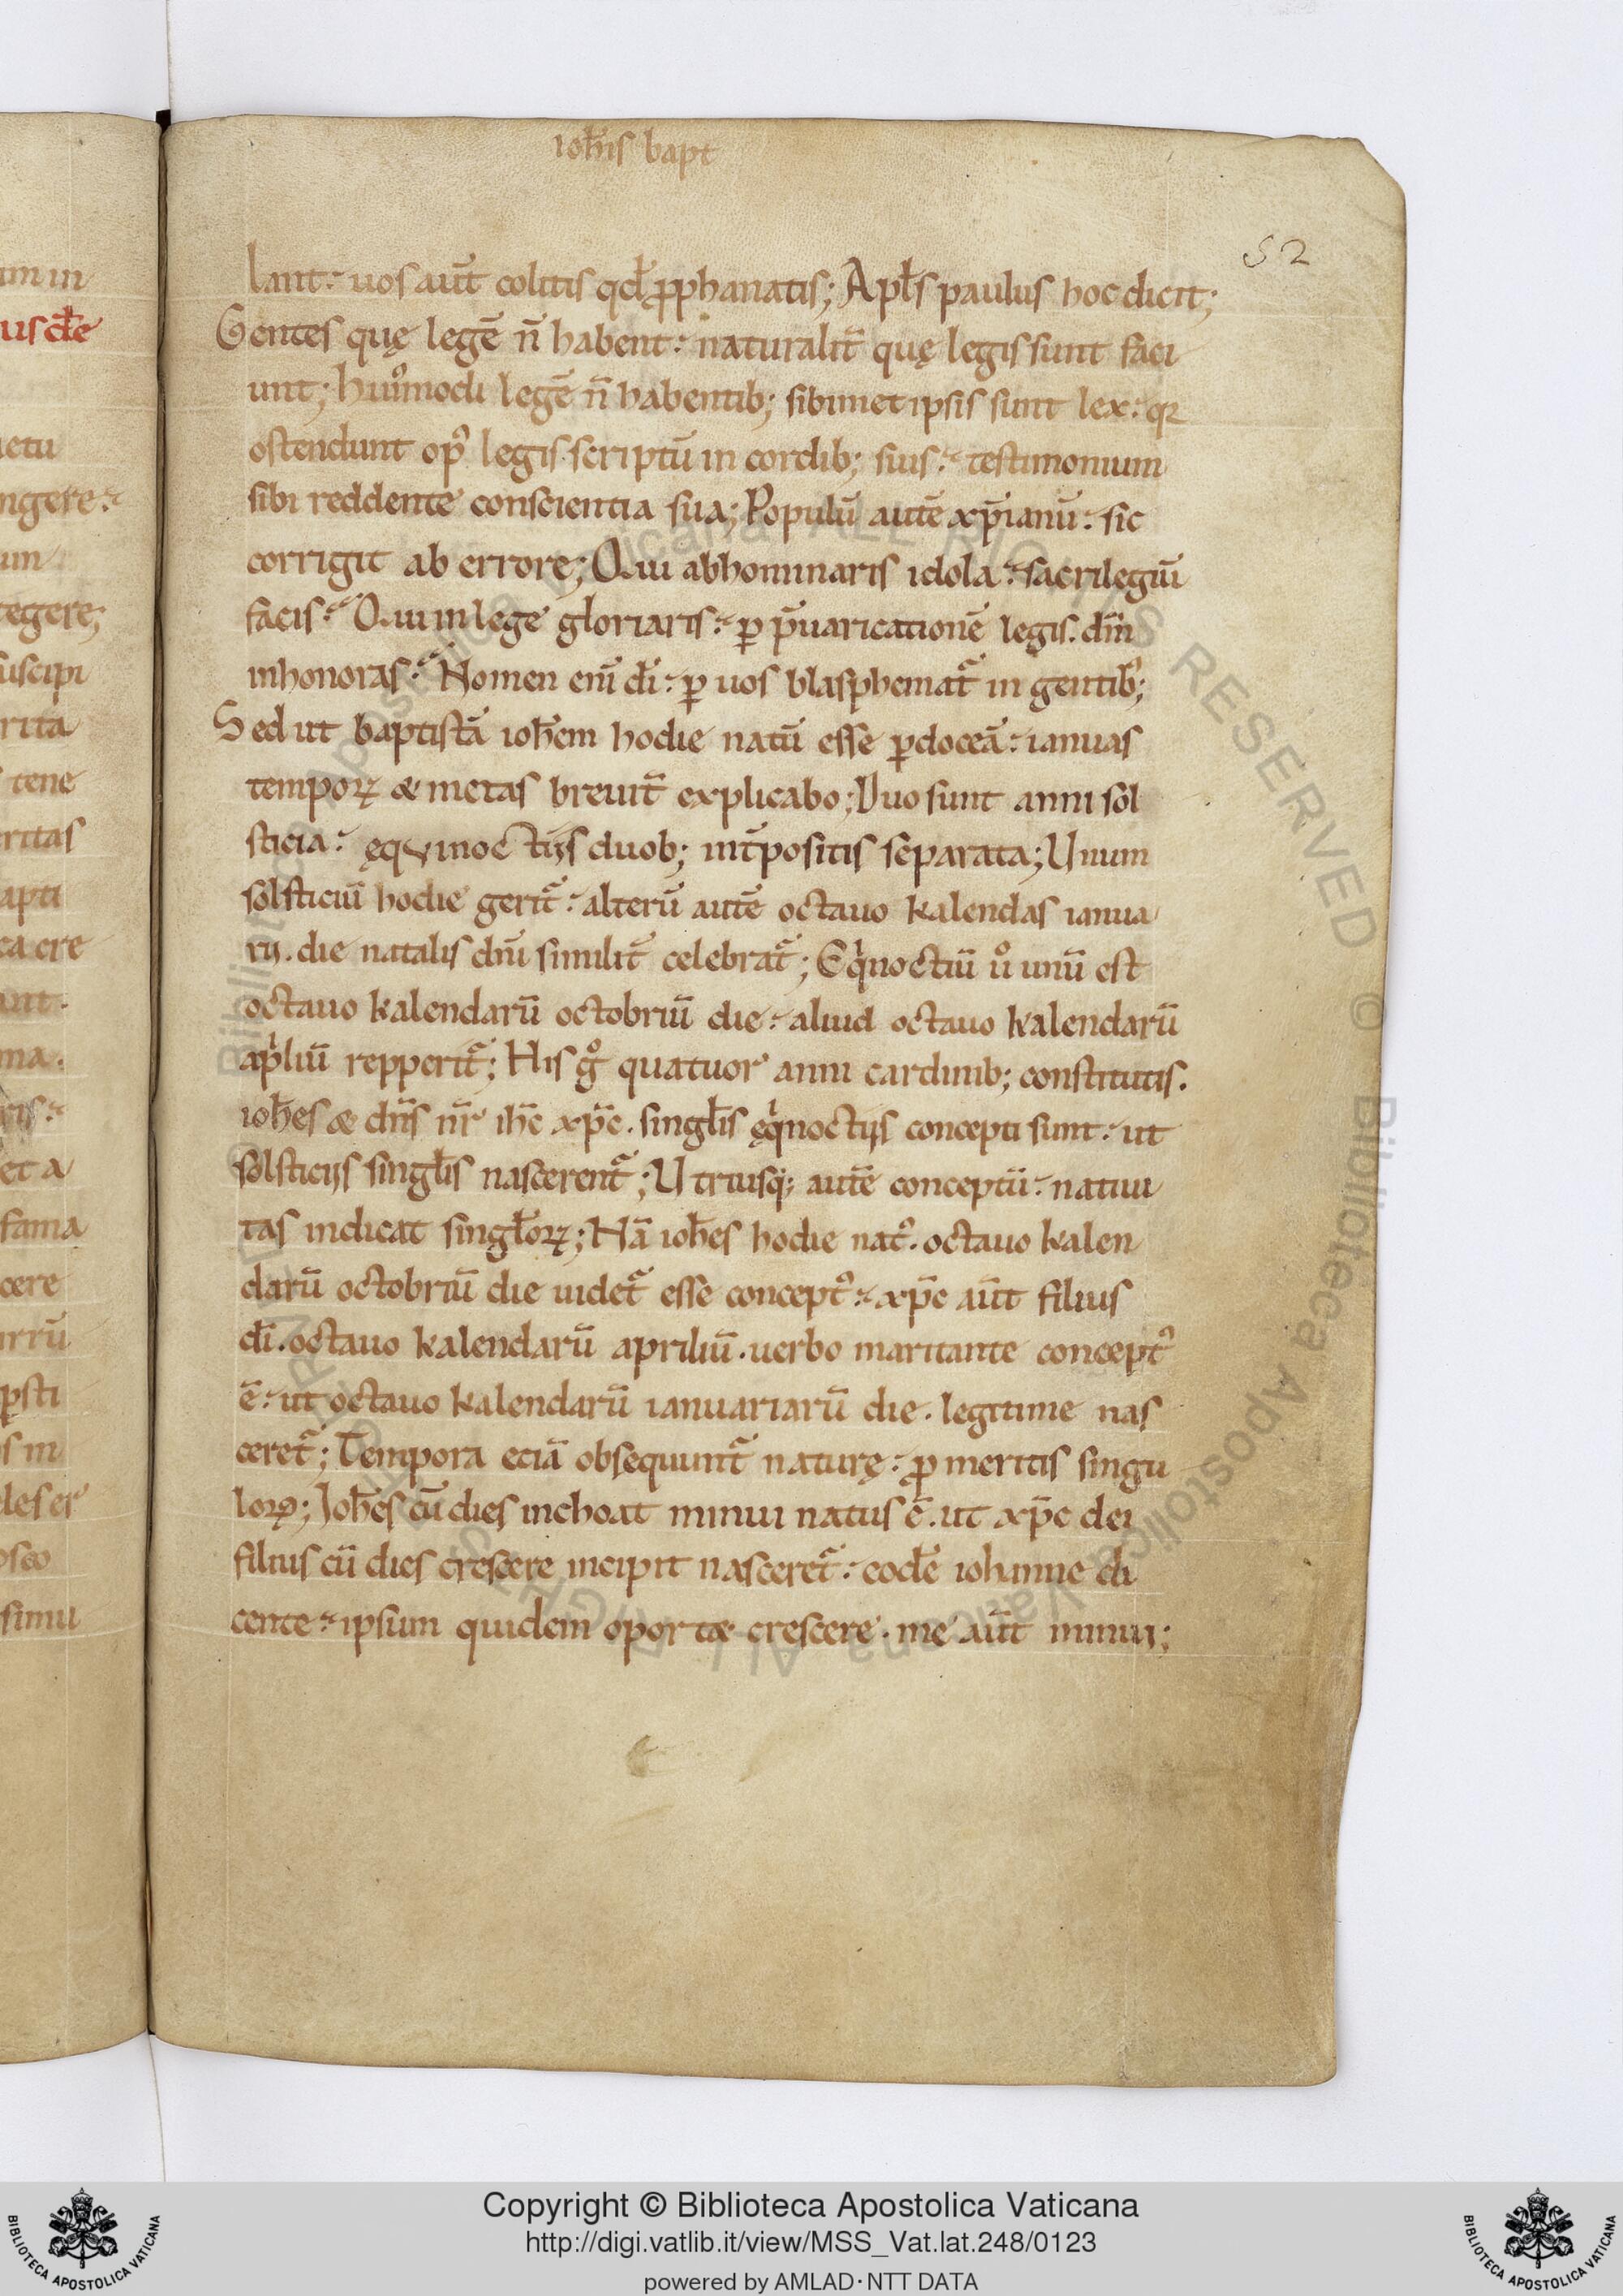 ioh̄is bapt
52
lant: uos aut̄ colitis qd̄ ꝓphanatis; Apl̄s paulus hoc dicit;
Gentes quę legē n̄ habent: naturalit̄ quę legis sunt faci
unt; huiꝰmodi legē n̄ habentib; sibimet ipsis sunt lex: qꝛ
ostendunt opꝰ legis scriptū in cordib; suis: testimonium
sibi reddente conscientia sua; Populū autē xp̄ianū: sic
corrigit ab errore; Qui abhominaris idola: sacrilegiū
facis: Qui in lege gloriaris: ꝑ p̄uaricationē legis. dm̄
inhonoras: Nomen eni̅ di̅: ꝑ uos blasphemat᷑ in gentibꝰ;
Sed ut baptistā ioh̄em hodie natū esse ꝑdoceā: ianuas
temporꝝ & metas breuit̄ explicabo; Duo sunt anni sol
sticia: ęquinoctijs duob; int̄positis separata; Unum
solsticiū hodie gerit᷑: alterū autē octauo kalendas ianua
rij. die natalis dn̄i similit̄ celebrat᷑; Eqͥnoctiū uͦ unū est
octauo kalendarū octobriū die: aliud octauo kalendarū
apͥliū repperit᷑; His gͦ quatuor anni cardinib; constitutis.
ioh̄es & dn̄s nr̄ ih̄c xp̄c. singl̄is ęqͥnoctijs concepti sunt: ut
solsticijs singl̄is nascerent᷑; Utriusq; autē conceptū: natiui
tas indicat singl̄orꝝ; Nā ioh̄es hodie natꝰ. octauo kalen
darū octobriū die uidet᷑ esse conceptꝰ: xp̄c aut̄ filius
di̅. octauo kalendarū apriliū. uerbo maritante conceptꝰ
ē: ut octauo kalendarū ianuariarū die. legitime nas
ceret᷑; Tempora eciā obsequunt᷑ naturę: ꝓ meritis singu
lorꝝ; Ioh̄es cū dies inchoat minui natus ē. ut xp̄c dei
filius cū dies crescere incipit nasceret᷑: eodē iohanne di
cente: ipsum quidem oport& crescere. me aut̄ minui;
um in
us dr̄e
etu
ngere:
um
tegere;
uscipi
rita
tene
ritas
apti
ca cre
unt.
ma.
et a
fama
cere
urrū
s in
oseo
simu
Copyright © Biblioteca Apostolica Vaticana
http://digi.vatlib.it/view/MSS_Vat.lat.248/0123
powered by AMLAD·NTT DATA
BIBLIOTECA APOSTOLICA VATICANA
BIBLIOTECA APOSTOLICA VATICANA